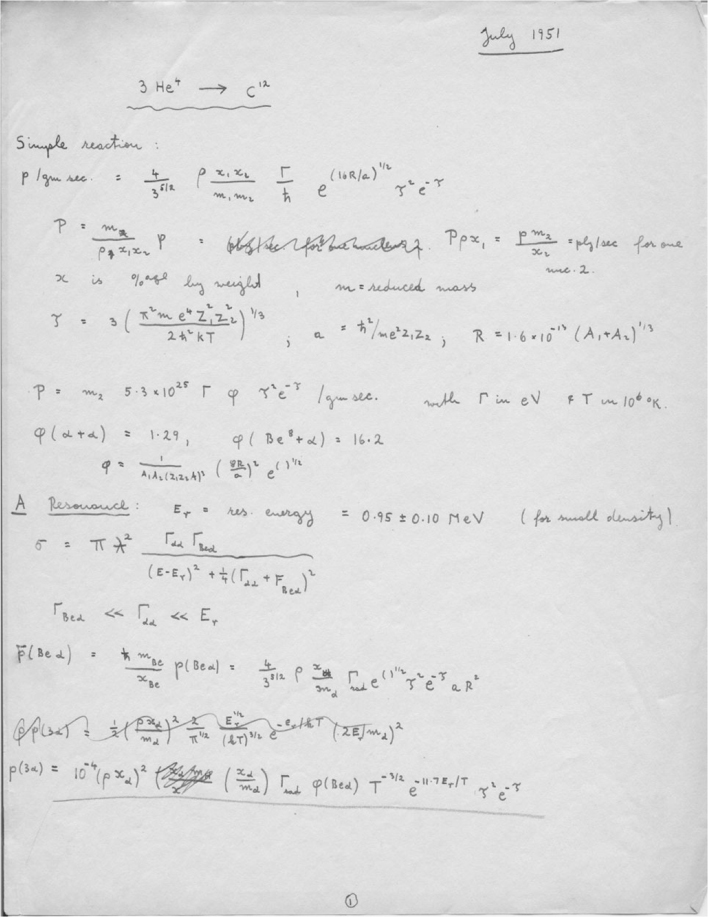 July 1951
3 He⁴ → C¹²
Simple reaction :
p /gm sec. = 4/3^(5/2) ρ x₁x₂/m₁m₂ Γ/ħ e^(16R/a)^(1/2) τ² e^-τ
P = m₂/ρ x₁x₂ p = . Pρx₁ = p m₂/x₂ = p/g/sec for one
nuc. 2.
x is %age by weight , m = reduced mass
τ = 3 (π² m e⁴ Z₁² Z₂²/2 ħ² kT)^1/3 ; a = ħ²/me²Z₁Z₂ ; R = 1.6×10⁻¹³ (A₁+A₂)^1/3
P = m₂ 5.3×10²⁵ Γ φ τ² e^-τ /gm sec. with Γ in eV & T in 10⁶ °K.
φ(α+α) = 1.29, φ(Be⁸+α) = 16.2
φ = 1/A₁A₂(Z₁Z₂A)³ (8R/a)² e^( )^1/2
A Resonance : E_r = res. energy = 0.95 ± 0.10 MeV (for small density)
σ = π ƛ² Γ_αα Γ_Beα/(E-E_r)² + ¼(Γ_αα + Γ_Beα)²
Γ_Beα << Γ_αα << E_r
P(Beα) = ħ m_Be/x_Be p(Beα) = 4/3^(5/2) ρ x_α/3m_α Γ_rad e^( )^1/2 τ² e^-τ a R²
p(3α) = ½ (ρx_α/m_α)² 2/π^1/2 E_r^1/2/(kT)^3/2 e^-E_r/kT (2E/m_α)²
p(3α) = 10⁻⁴ (ρ x_α)² (x_α/m_α) Γ_rad φ(Beα) T^-3/2 e^-11.7E_r/T τ² e^-τ
1